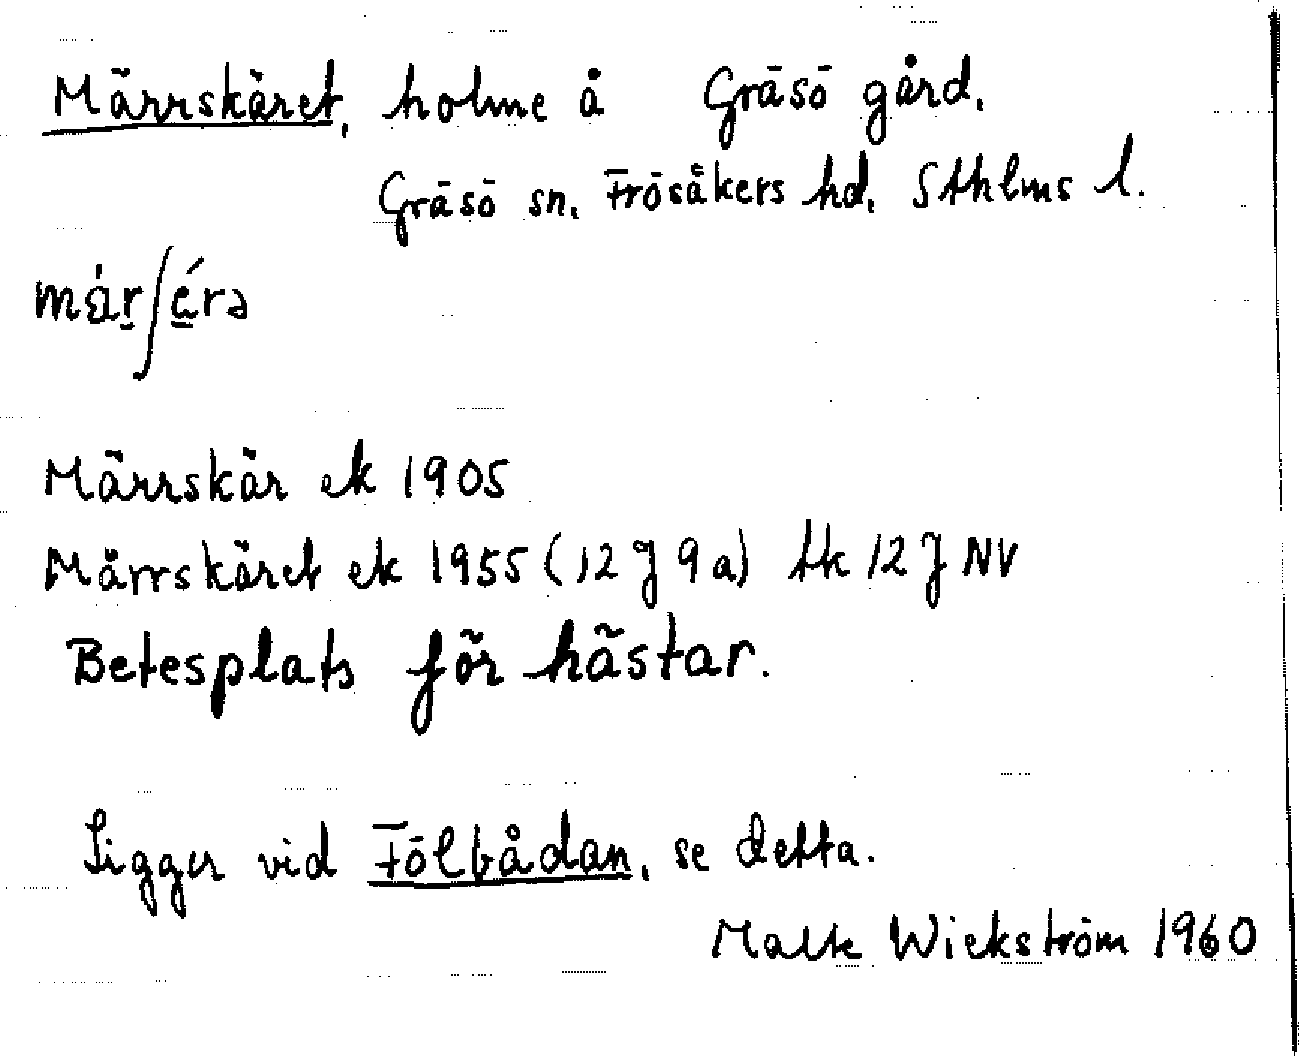 Märrskäret, holme å Gräsö gård,
Gräsö sn, Frösåkers hd, Sthlms l.
mä̀r∫ä́rə
Märrskär ek 1905
Märrskäret ek 1955 (12 J 9 a) tk 12 J NV
Betesplats för hästar.
Ligger vid Fölbådan, se detta.
Malte Wickström 1960